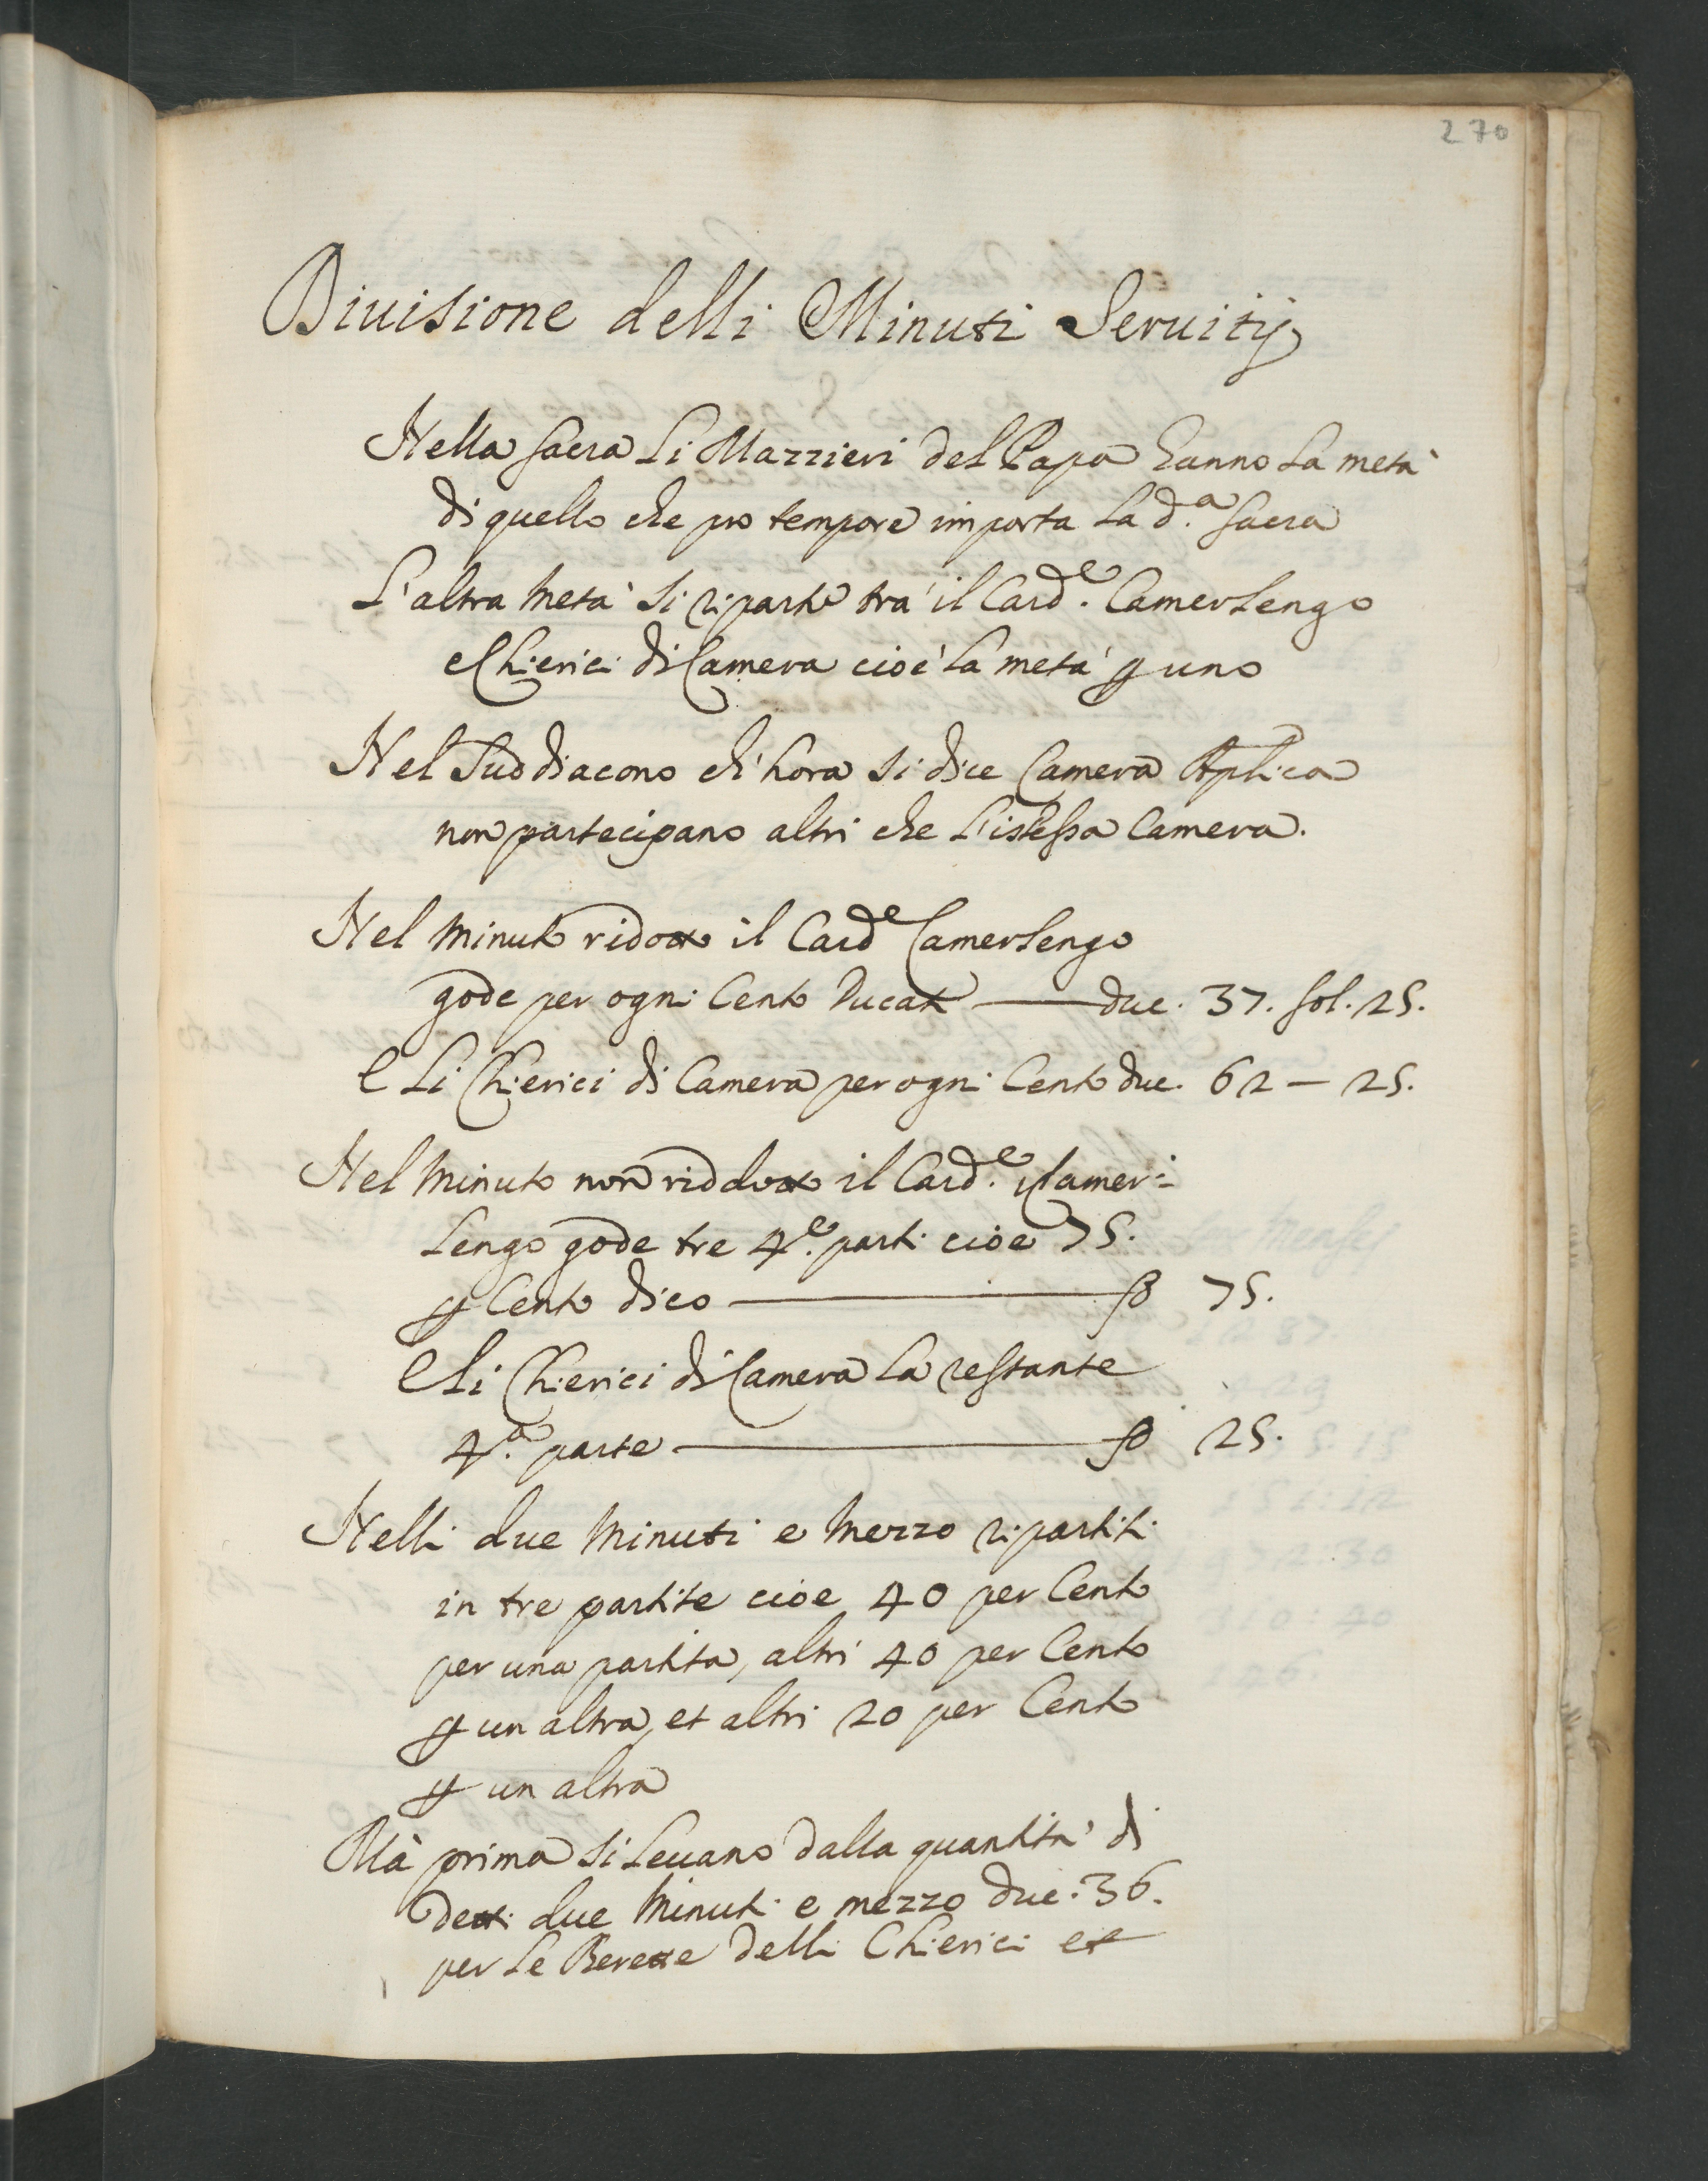 270
Diuisione delli Minuti Seruitij
Nella sacra Li Mazzieri del Papa hanno La metà
di quello che pro tempore importa La d.a sacra
L'altra metà si riparte trà il Card.e Camerlengo
e Chierici di Camera cioè La metà ꝑ uno
Nel Suddiacono ch'hora si dice Camera Aplica
non partecipano altri che L'istessa Camera.
Nel minuto ridotto il Card.e Camerlengo
gode per ogni Cento Ducati — duc. 37. sol. 25.
E Li Chierici di Camera per ogni Cento duc. 62 — 25.
Nel minuto non riddotto il Card.e Camer=
Lengo gode tre 4.e parti cioe 75.
ꝑ Cento dico — 75.
E Li Chierici di Camera La restante
4.a parte — 25.
Nelli due minuti e mezzo ripartiti
in tre partite cioe 40 per Cento
per una partita, altri 40 per Cento
ꝑ un altra, et altri 20 per Cento
ꝑ un altra
Mà prima si Leuano dalla quantità di
detti due minuti e mezzo duc. 36.
per Le Berette delli Chierici et